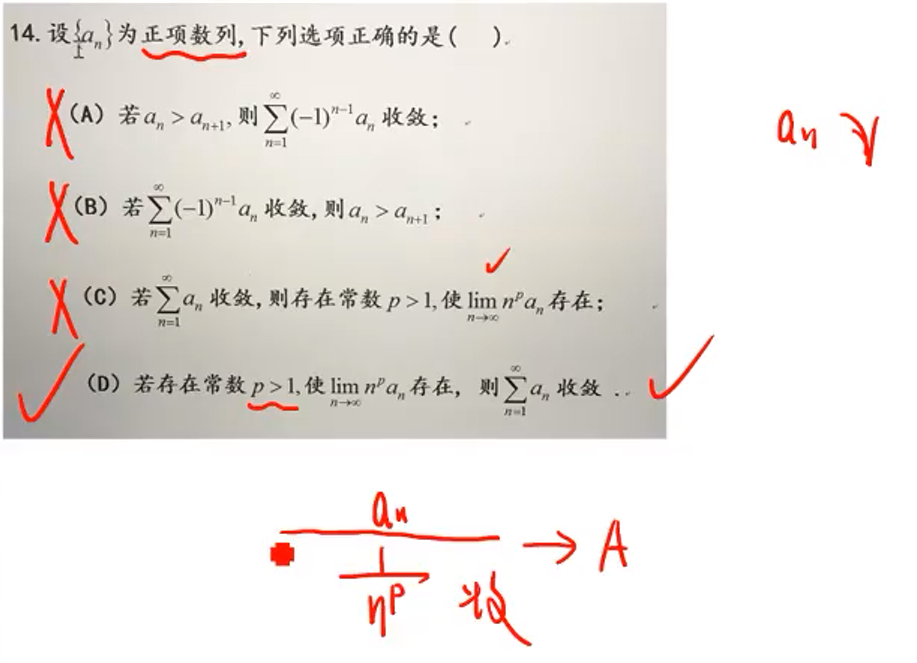 14. 设{aₙ}为正项数列,下列选项正确的是( ).
(A) 若 aₙ > aₙ₊₁, 则 ∑_{n=1}^{∞} (−1)^{n−1} aₙ 收敛;
aₙ ↘
(B) 若 ∑_{n=1}^{∞} (−1)^{n−1} aₙ 收敛, 则 aₙ > aₙ₊₁;
(C) 若 ∑_{n=1}^{∞} aₙ 收敛, 则存在常数 p > 1, 使 lim_{n→∞} nᵖaₙ 存在;
(D) 若存在常数 p > 1, 使 lim_{n→∞} nᵖaₙ 存在, 则 ∑_{n=1}^{∞} aₙ 收敛 ..
aₙ
1 → A
nᵖ 收